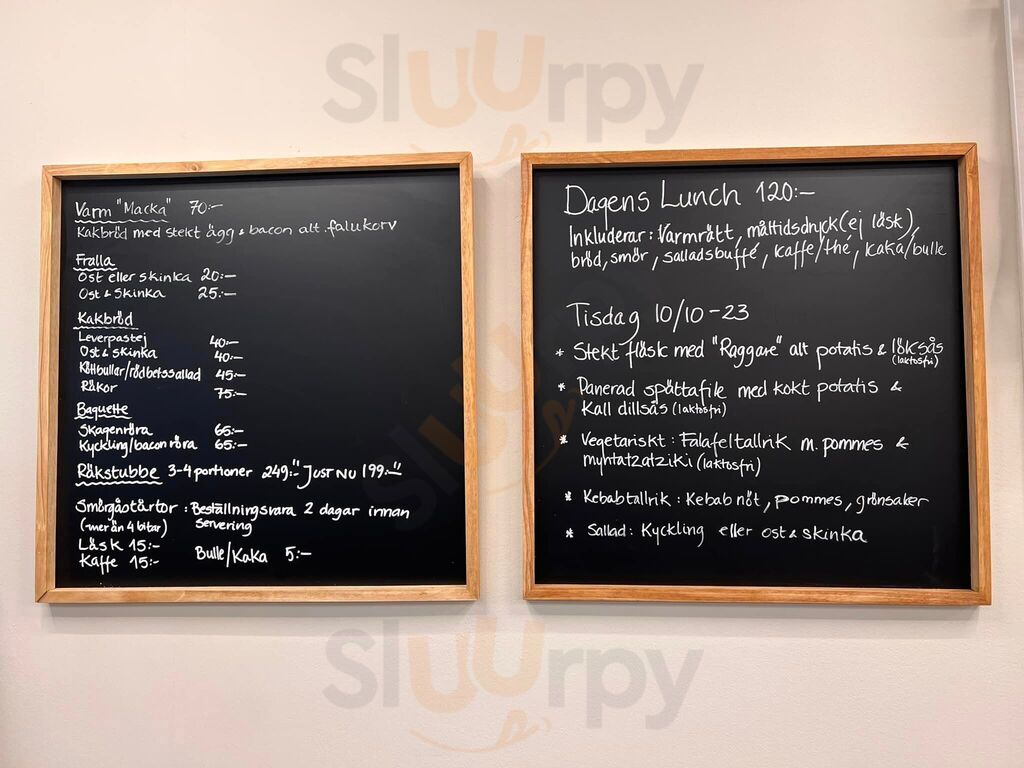 Sluurpy
Varm "Macka" 70:-
Kakbröd med stekt ägg & bacon alt. falukorv
Fralla
Ost eller skinka 20:-
Ost & Skinka 25:-
Kakbröd
Leverpastej 40:-
Ost & skinka 40:-
Köttbullar/rödbetssallad 45:-
Räkor 75:-
Baguette
Skagenröra 65:-
Kyckling/bacon röra 65:-
Räkstubbe 3-4 portioner 249:-" Just NU 199:-"
Smörgåstårtor: Beställningsvara 2 dagar innan
(mer än 4 bitar) servering
Läsk 15:-
Kaffe 15:-
Bulle/Kaka 5:-
Dagens Lunch 120:-
Inkluderar: Varmrätt, måltidsdryck (ej läsk),
bröd, smör, salladsbuffé, kaffe/thé, kaka/bulle
Tisdag 10/10-23
* Stekt fläsk med "Raggare" alt potatis & löksås
(laktosfri)
* Panerad spättafile med kokt potatis &
Kall dillsås (laktosfri)
* Vegetariskt: Falafeltallrik m. pommes &
myntatzatziki (laktosfri)
* Kebabtallrik: Kebab nöt, pommes, grönsaker
* Sallad: Kyckling eller ost & skinka
Sluurpy